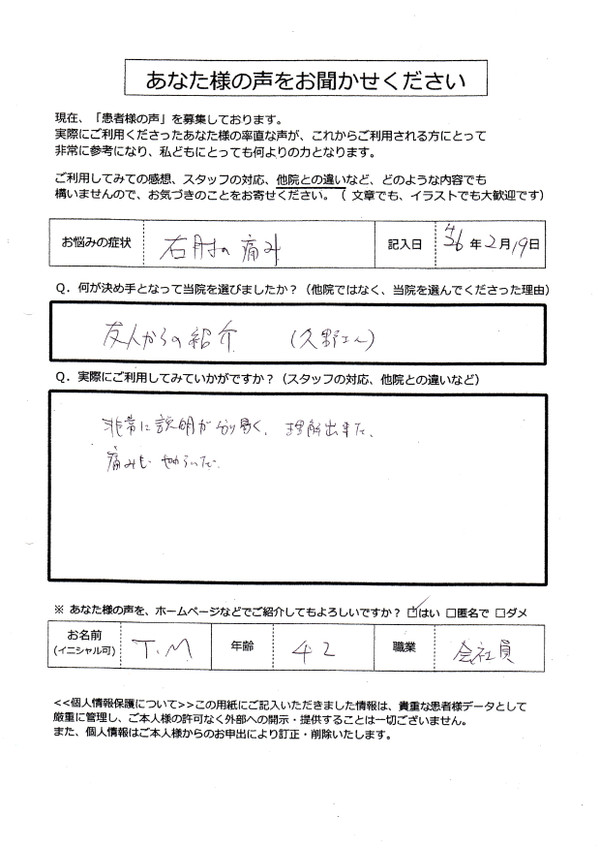 あなた様の声をお聞かせください
現在、「患者様の声」を募集しております。
実際にご利用くださったあなた様の率直な声が、これからご利用される方にとって
非常に参考になり、私どもにとっても何よりの力となります。
ご利用してみての感想、スタッフの対応、他院との違いなど、どのような内容でも
構いませんので、お気づきのことをお寄せください。（ 文章でも、イラストでも大歓迎です）
お悩みの症状 右肘の痛み 記入日 年2月19日
Q．何が決め手となって当院を選びましたか？（他院ではなく、当院を選んでくださった理由）
友人からの紹介 （久野さん）
Q．実際にご利用してみていかがですか？（スタッフの対応、他院との違いなど）
非常に説明が分り易く、理解出来た、
痛みも やわらいだ
※ あなた様の声を、ホームページなどでご紹介してもよろしいですか？ ☑はい □匿名で □ダメ
お名前 T.M 年齢 42 職業 会社員
(イニシャル可)
<<個人情報保護について>>この用紙にご記入いただきました情報は、貴重な患者様データとして
厳重に管理し、ご本人様の許可なく外部への開示・提供することは一切ございません。
また、個人情報はご本人様からのお申出により訂正・削除いたします。